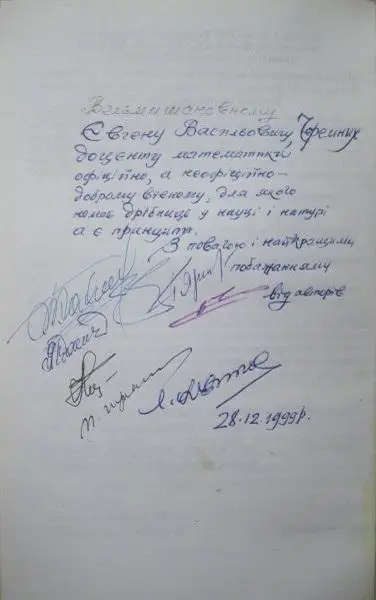 Вельмишановному
Євгену Васильовичу Черемних
доценту математики
офіційно, а неофіційно –
доброму вченому, для якого
немає дрібниць у науці і натурі
а є принцип.
З повагою і найкращими
побажаннями
від авторів
28.12.1999р.